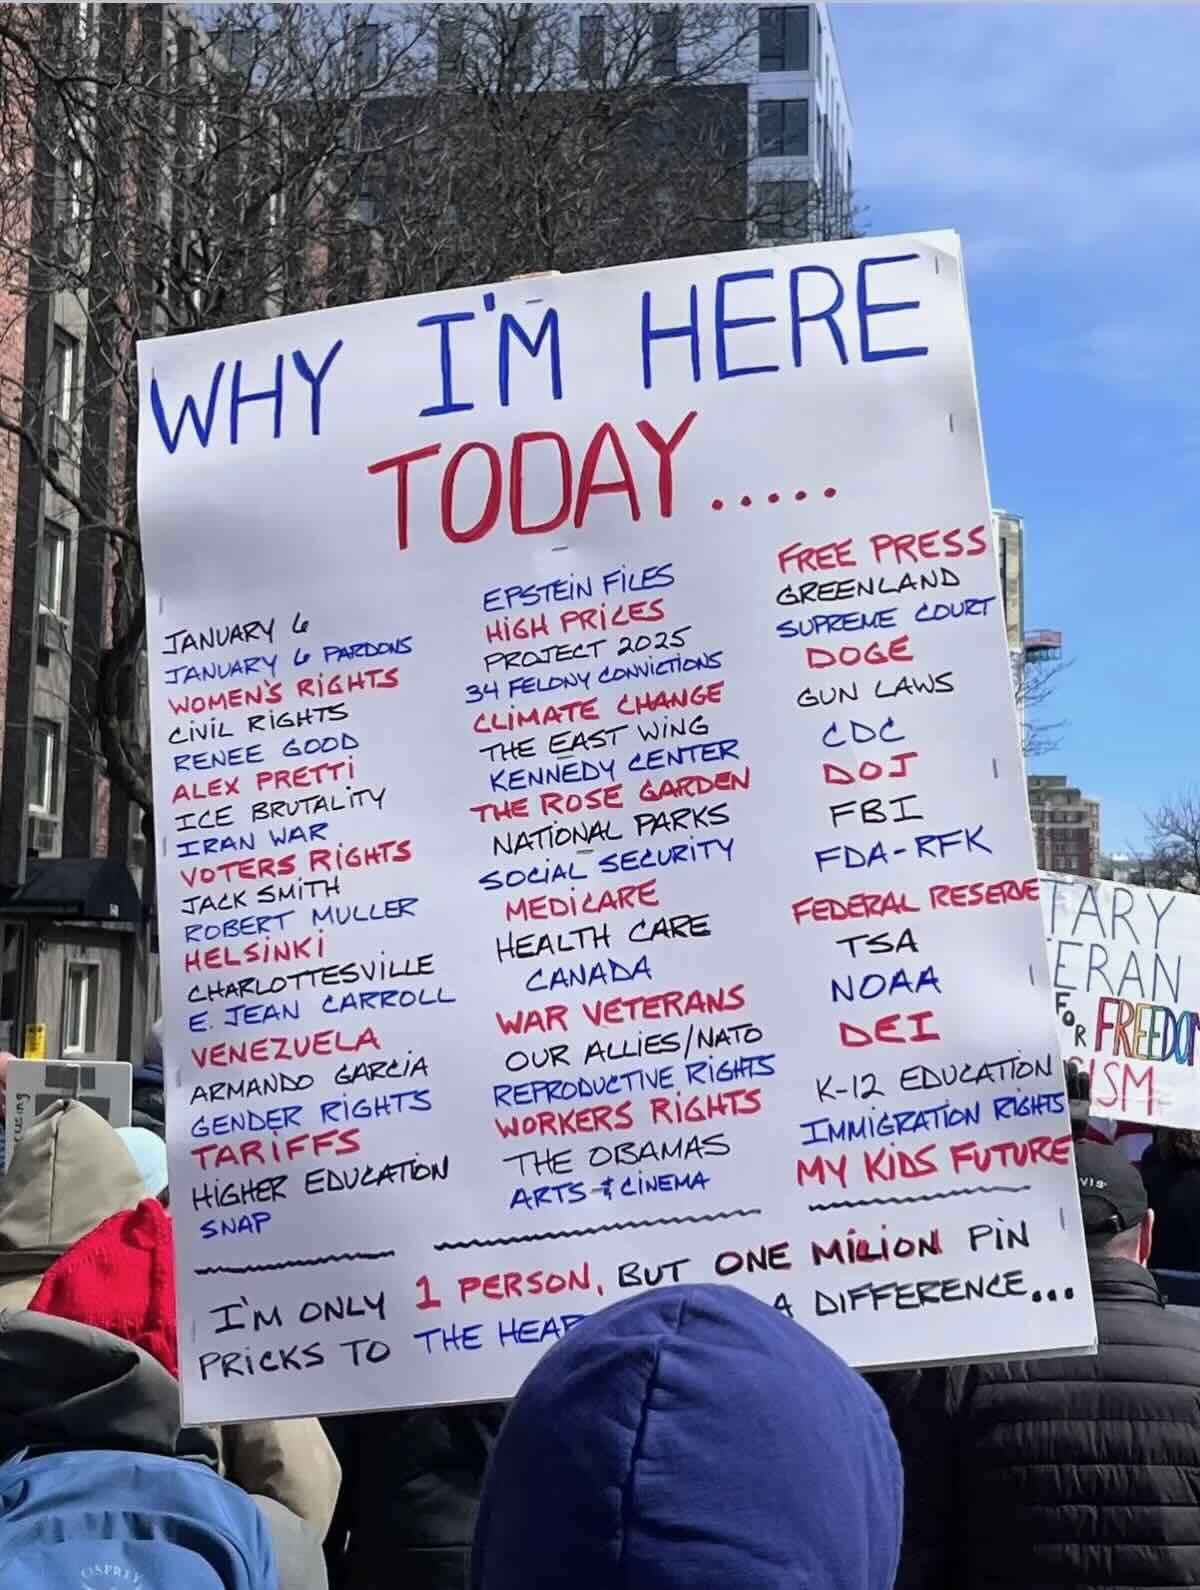 WHY I'M HERE
TODAY.....
JANUARY 6
JANUARY 6 PARDONS
WOMEN'S RIGHTS
CIVIL RIGHTS
RENEE GOOD
ALEX PRETTI
ICE BRUTALITY
IRAN WAR
VOTERS RIGHTS
JACK SMITH
ROBERT MULLER
HELSINKI
CHARLOTTESVILLE
E. JEAN CARROLL
VENEZUELA
ARMANDO GARCIA
GENDER RIGHTS
TARIFFS
HIGHER EDUCATION
SNAP
EPSTEIN FILES
HIGH PRICES
PROJECT 2025
34 FELONY CONVICTIONS
CLIMATE CHANGE
THE EAST WING
KENNEDY CENTER
THE ROSE GARDEN
NATIONAL PARKS
SOCIAL SECURITY
MEDICARE
HEALTH CARE
CANADA
WAR VETERANS
OUR ALLIES/NATO
REPRODUCTIVE RIGHTS
WORKERS RIGHTS
THE OBAMAS
ARTS & CINEMA
FREE PRESS
GREENLAND
SUPREME COURT
DOGE
GUN LAWS
CDC
DOJ
FBI
FDA-RFK
FEDERAL RESERVE
TSA
NOAA
DEI
K-12 EDUCATION
IMMIGRATION RIGHTS
MY KIDS FUTURE
I'M ONLY 1 PERSON, BUT ONE MILION PIN
PRICKS TO THE HEAR A DIFFERENCE...
TARY
ERAN
FOR FREEDO
ISM
OSPREY